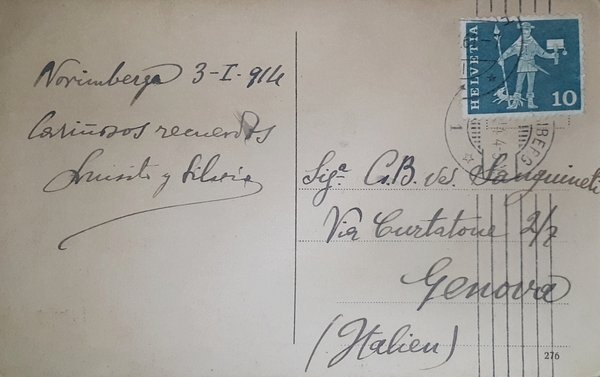 Norimberga 3-I-914
Cariñosos recuerdos
Luisito y Silvia
HELVETIA
10
NBERG
1
Sigª G.B. ved. Sanguineti
Via Curtatone 2/7
Genova
(Italien)
276